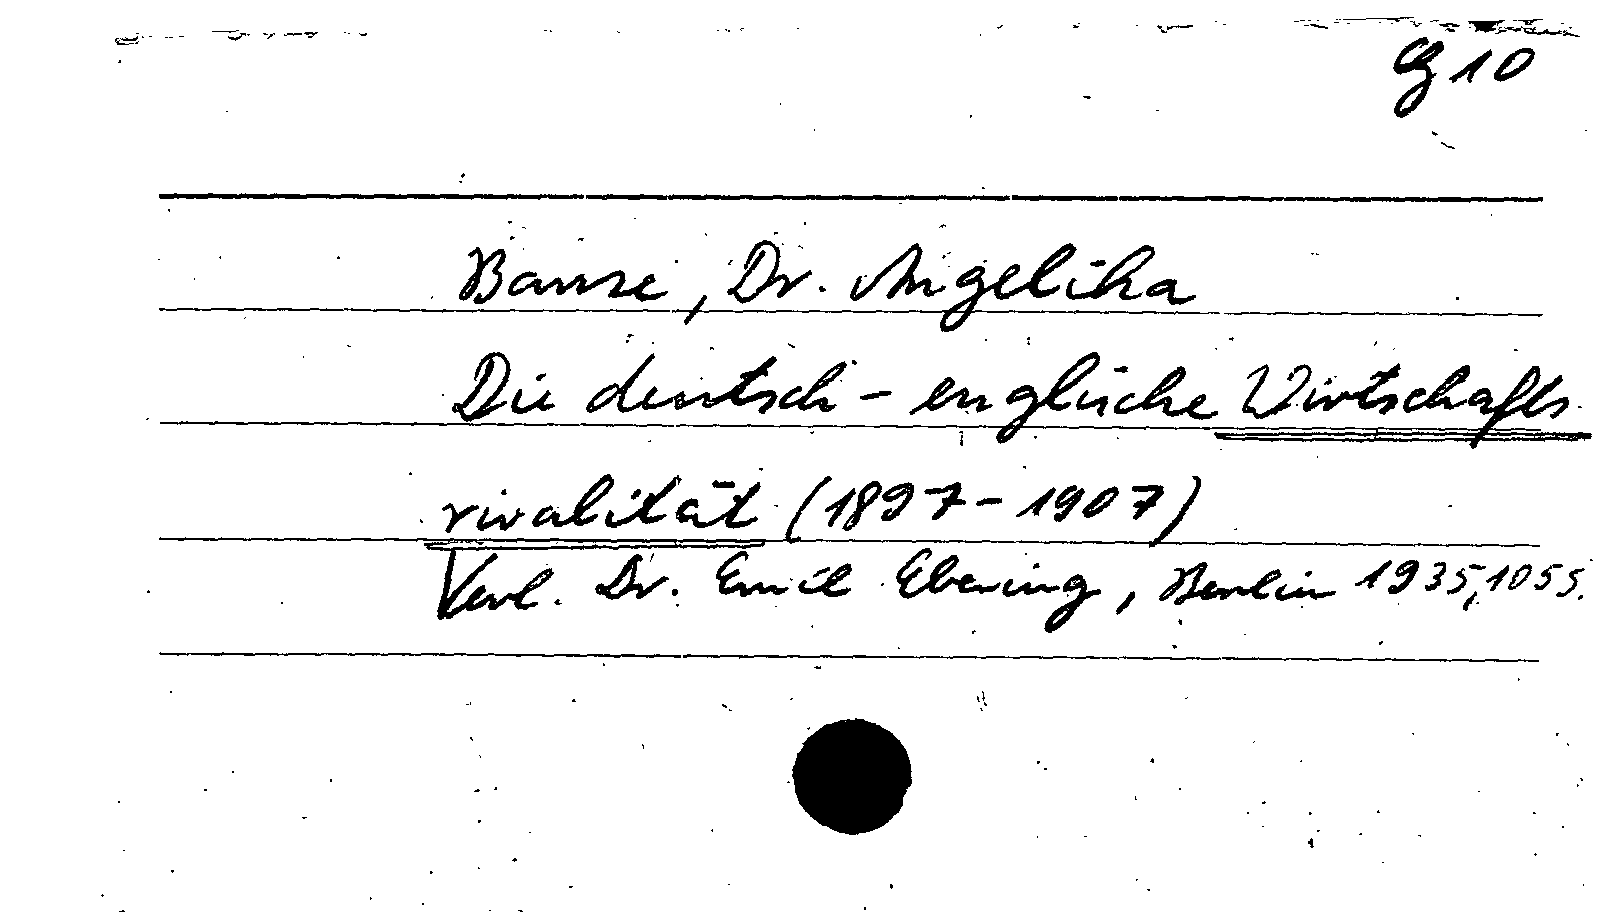 G 10
Banze, Dr. Angelika
Die deutsch-englische Wirtschafts
rivalität (1897-1907)
Verl. Dr. Emil Ebering, Berlin 1935, 105 S.